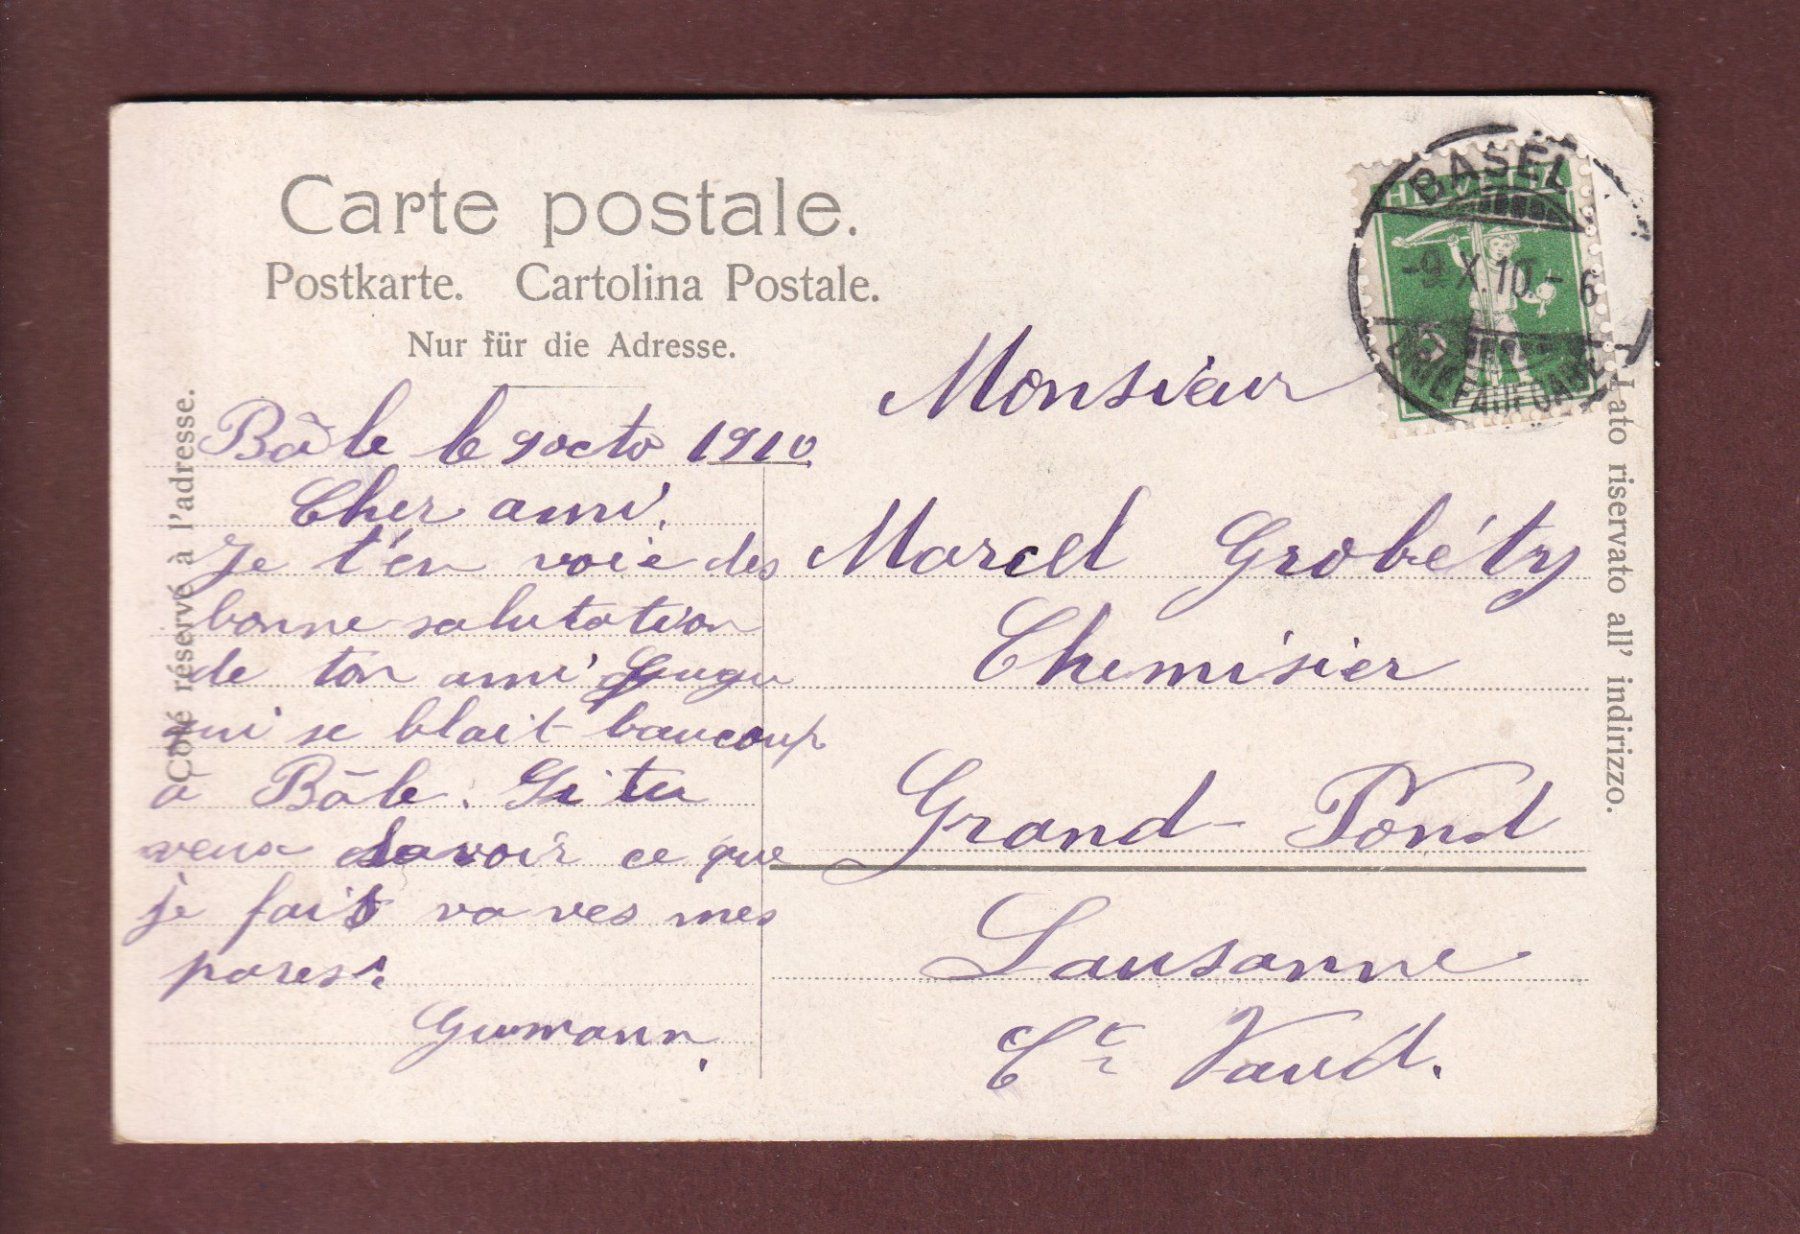 Carte postale.
Postkarte. Cartolina Postale.
Nur für die Adresse.
Côté réservé à l'adresse.
Bâle le 9 octo 1910
Cher ami,
Je t'en voie des
bonne salutation
de ton ami Gugu
qui se blait baucoup
a Bâle. Si tu
veux savoir ce que
je fais va ves mes
pares.
Gumann.
HELVETIA
BASEL
-9.X.10.-6
BRIEFAUFGABE
Monsieur
Marcel Grobéty
Chemisier
Grand-Pond
Lausanne
Ct Vaud.
Lato riservato all' indirizzo.